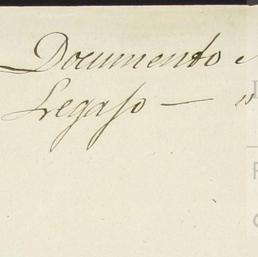 Documento
Legaso — "